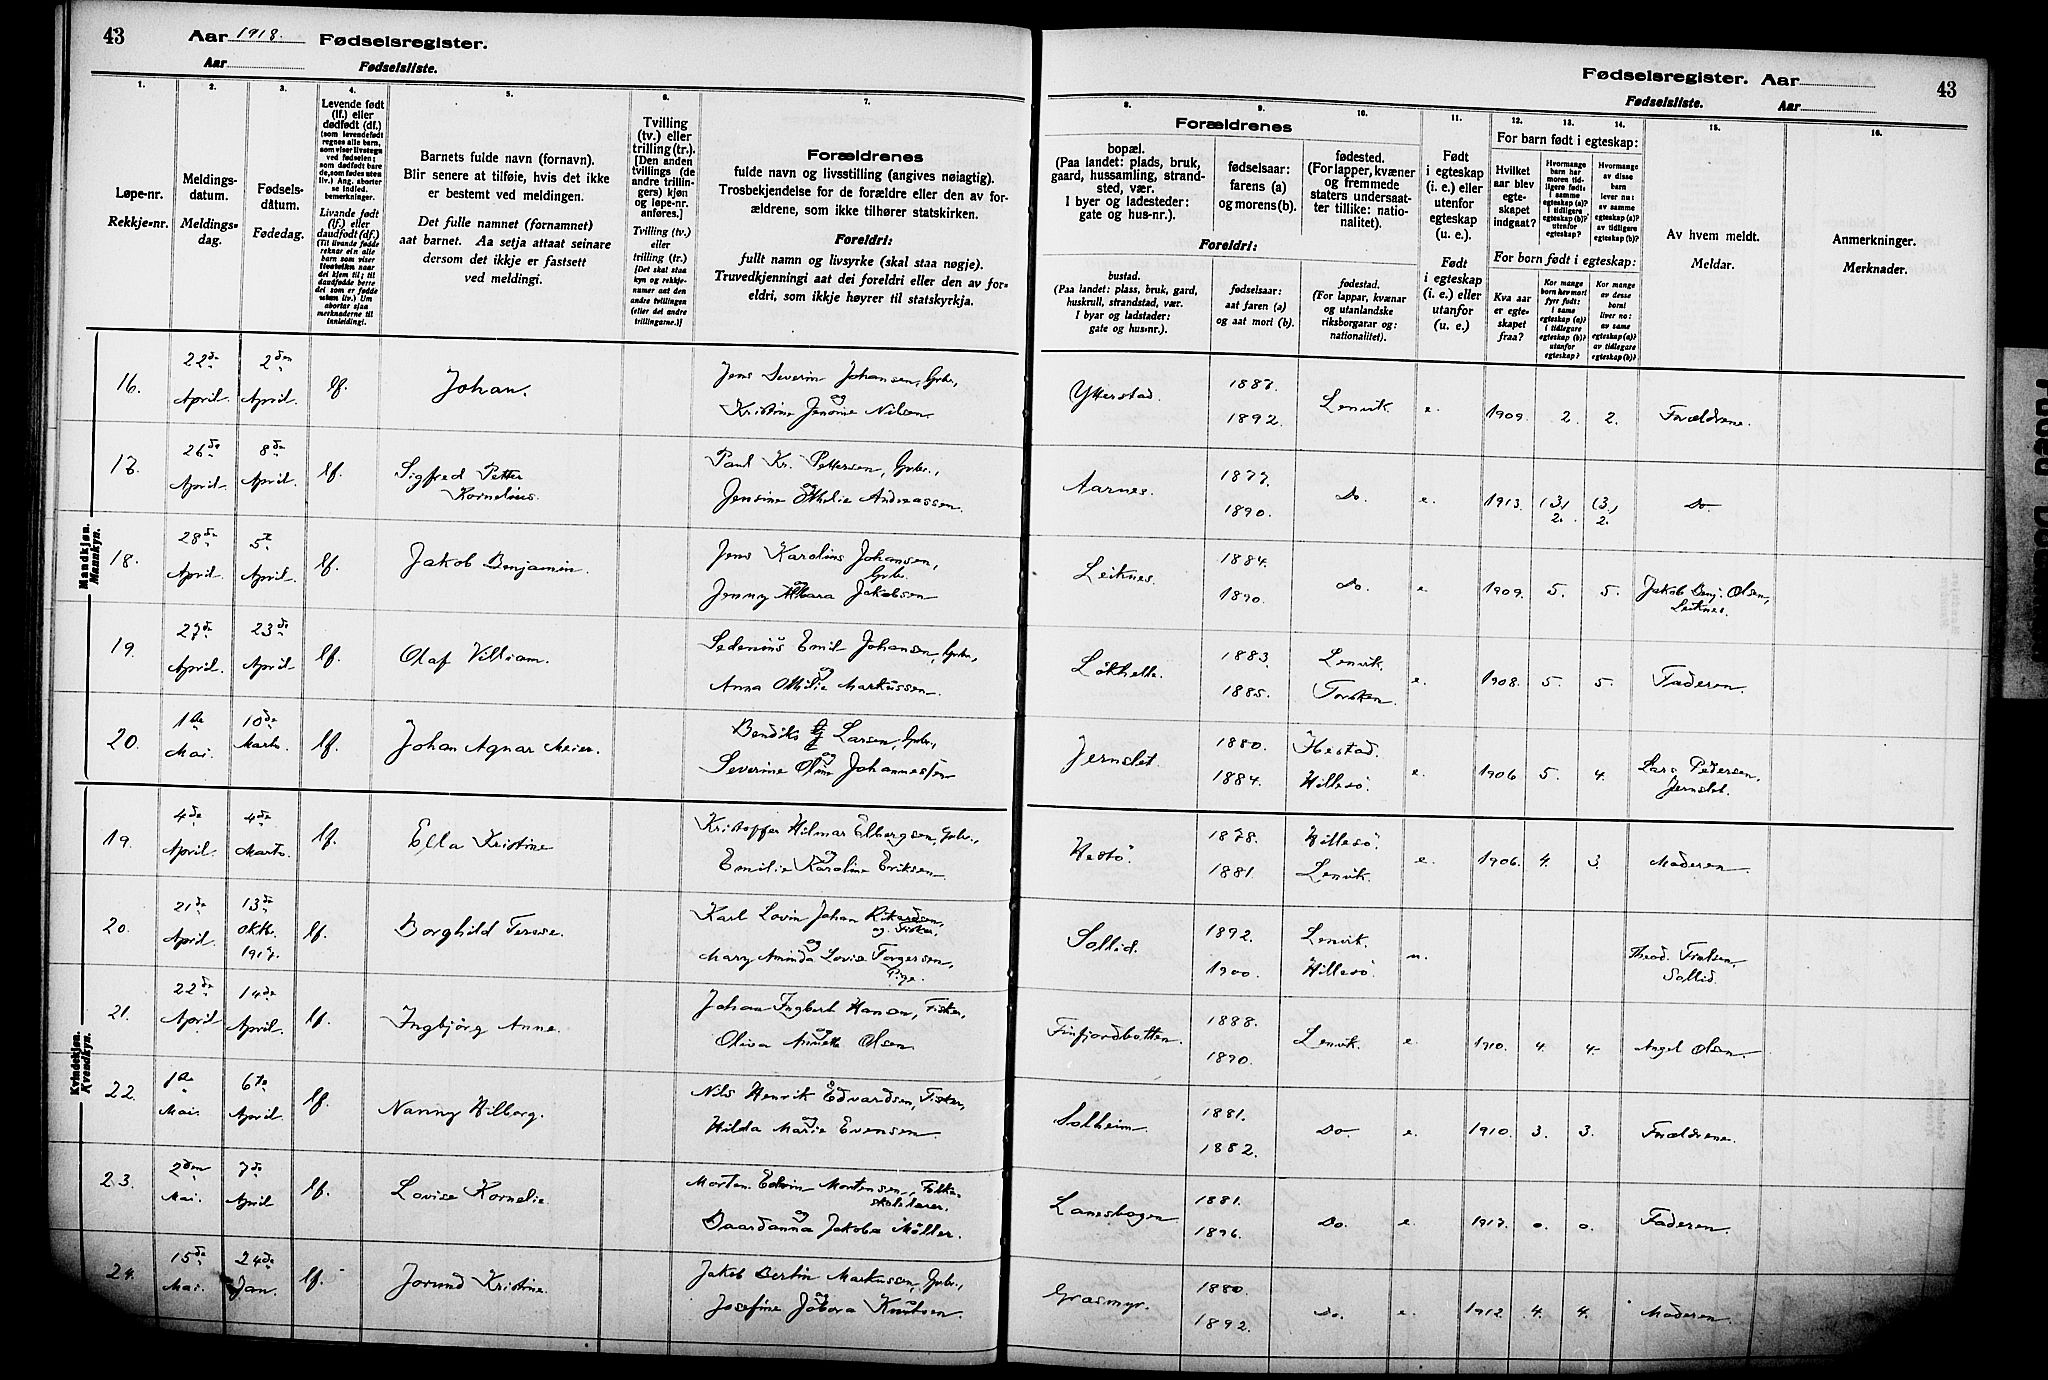 43 Aar 1918. Fødselsregister.
Aar Fødselsliste.
Fødselsregister. Aar 43
Fødselsliste. Aar
1. 2. 3. 4. 5. 6. 7. 8. 9. 10. 11. 12. 13. 14. 15. 16.
Løpe-nr.
Rekkje=nr.
Meldings-
datum.
Meldings=
dag.
Fødsels-
dåtum.
Fødedag.
Levende født
(lf.) eller
dødfødt (df.)
Livande født
(lf.) eller
daudfødt (df.)
Barnets fulde navn (fornavn).
Blir senere at tilføie, hvis det ikke
er bestemt ved meldingen.
Det fulle namnet (fornamnet)
aat barnet. Aa setja attaat seinare
dersom det ikkje er fastsett
ved meldingi.
Tvilling
(tv.) eller
trilling (tr.).
[Den anden
tvillings (de
andre trillin-
gers) kjøn
og løpe-nr.
anføres.]
Tvilling (tv.)
eller
trilling (tr.)
[Det skal staa
kyn og rekkje-
numer aat den
andre tvillingen
(eller dei andre
trillingarne.)]
Forældrenes
fulde navn og livsstilling (angives nøiagtig).
Trosbekjendelse for de forældre eller den av for-
ældrene, som ikke tilhører statskirken.
Foreldri:
fullt namn og livsyrke (skal staa nøgje).
Truvedkjenningi aat dei foreldri eller den av for=
eldri, som ikkje høyrer til statskyrkja.
Forældrenes
bopæl.
(Paa landet: plads, bruk,
gaard, hussamling, strand-
sted, vær.
I byer og ladesteder:
gate og hus-nr.).
fødselsaar:
farens (a)
og morens (b).
fødested.
(For lapper, kvæner
og fremmede
staters undersaat-
ter tillike: natio-
nalitet).
Foreldri:
bustad.
(Paa landet: plass, bruk, gard,
huskrull, strandstad, vær.
I byar og ladstader:
gate og hus=nr.).
fødselsaar:
aat faren (a)
og aat mori (b).
fødestad.
(For lappar, kvænar
og utanlandske
riksborgarar og:
nationalitet).
Født
i egteskap
(i. e.) eller
utenfor
egteskap
(u. e.).
Født
i egteskap
(i. e.) eller
utanfor
(u. e.).
For barn født i egteskap:
Hvilket
aar blev
egte-
skapet
indgaat?
Hvormange
barn har
moren tid-
ligere født:
i samme
egteskap (a)?
i tidligere
egteskap (b)?
utenfor
egteskap?
Hvormange
av disse
barn
lever nu:
av samme
egteskap (a)?
av tidligere
egteskap (b)?
For born født i egteskap:
Kva aar
er egte-
skapet
fraa?
Kor mange
born hev mori
fyrr født:
i same
egteskap (a)?
i tidlegare
egteskap (b)?
utanfor
egteskap?
Kor mange
av desse
born
liver no:
av same
egteskap (a)?
av tidlegare
egteskap (b)?
Av hvem meldt.
Meldar.
Anmerkninger.
Merknader.
Mandkjøn.
Mannkyn.
16. 22de April. 2den April. lf. Johan. Jens Severin Johansen, Gbr., og Kristine Jenoine Nilsen Ytterstad. 1887. 1892. Lenvik e. 1909. 2. 2. Forældrene.
17. 26de April. 8de April. lf. Sigfred Petter Kornelius. Paul Kr. Pettersen, Gbr., og Jensine Othilie Andreassen. Aarnes. 1877. 1890. Do. e. 1913. (3,) 2. (3,) 2. Do
18. 28de April. 5te April. lf. Jakob Benjamin. Jens Karolius Johansen, Gbr. og Jenny Albara Jakobsen Leiknes. 1884. 1890. Do. e. 1909. 5. 5. Jakob Benj. Olsen, Leiknes.
19. 27de April. 23de April. lf. Olaf Villiam. Sedenius Emil Johansen, Gbr., og Anna Othilie Markussen. Løkhelle. 1883. 1885. Lenvik. Torsken. e. 1908. 5. 5. Faderen.
20. 1ste Mai. 10de Marts. lf. Johan Agnar Meier. Bendiks G Larsen, Gbr., og Severine Oline Johannessen Jernslet. 1880. 1884. Hestad. Hillesø. e. 1906 5. 4. Lars Pedersen, Jernslet.
Kvindekjøn.
Kvendkyn.
19. 4de April. 4de Marts. lf. Ella Kristine Kristoffer Hilmar Elbergsen, Gbr., og Emilie Karoline Eriksen. Hestø. 1878. 1881. Hillesø. Lenvik. e. 1906. 4. 3. Moderen.
20. 21de April. 13de Oktbr. 1917. lf. Borghild Terese. Karl Lovin Johan Rikardsen, og. Fisker, og Mary Aminda Lovise Torgersen, Pige. Sollid. 1892. 1900. Lenvik. Hillesø. u. Theod. Torlsen, Sollid.
21. 22de April 14de April. lf. Ingbjørg Anne. Johan Ingbert Hanson, Fisker, og Oliva Annette Olsen Finfjordbotten. 1888. 1890. Lenvik. e. 1910. 4. 4. Angel Olsen.
22. 1ste Mai. 6te April. lf. Nanny Hilborg. Nils Henrik Edvardsen, Fisker, og Hilda Marie Evensen. Solheim. 1881. 1882. Do. e. 1910. 3. 3. Forældrene.
23. 2den Mai. 7de April lf. Lovise Kornelie. Morten Edvin Mortensen, Folke- skolelærer. og Baardanna Jakoba Møller. Lanesbogen. 1881. 1896. Do. e. 1917. 0. 0. Faderen.
24. 15de Mai. 24de Jan. lf. Jorund Kristine. Jakob Bertin Markussen, Gbr., og Josefine Jobora Knutsen. Grasmyr. 1880. 1892. Do. e. 1912. 4. 4. Moderen.